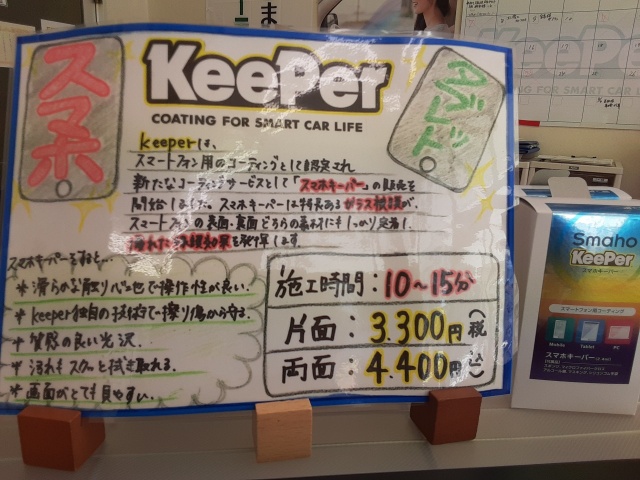 スマホ
KeePer
COATING FOR SMART CAR LIFE
タブレット
keeperは、
スマートフォン用のコーティングとして認定され
新たなコーティングサービスとして「スマホキーパー」の販売を
開始しました。スマホキーパーは特長あるガラス被膜が、
スマートフォンの表面・裏面どちらの素材にもしっかり定着し、
効果を発揮します。
スマホキーパーをすると…
＊滑らかな触りごこちで操作性が良い。
＊keeper独自の技術で擦り傷から守る。
＊質感の良い光沢。
＊汚れもスグッと拭き取れる。
＊画面がとても見やすい。
施工時間：10～15分
片面：3.300円（税
両面：4.400円込）
Smaho
KeePer
スマホキーパー
スマートフォン用コーティング
Mobile
Tablet
PC
スマホキーパー